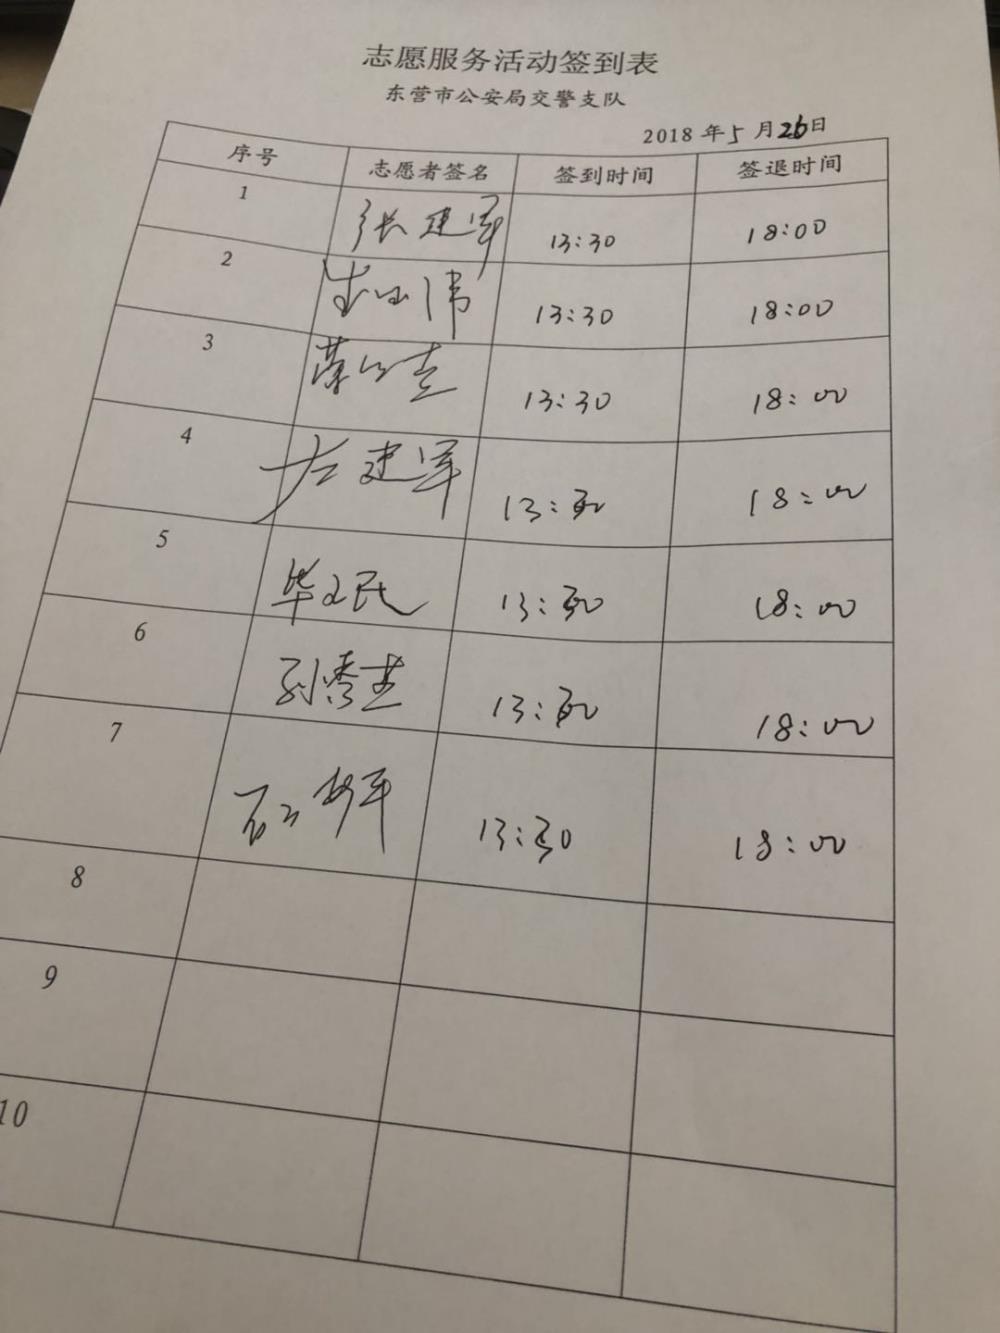 志愿服务活动签到表
东营市公安局交警支队
2018 年 5 月 26 日
序号 志愿者签名 签到时间 签退时间
1 张建军 13:30 18:00
2 13:30 18:00
3 13:30 18:00
4 建军 13:30 18:00
5 毕 民 13:30 18:00
6 孙秀 13:30 18:00
7 13:30 18:00
8
9
10